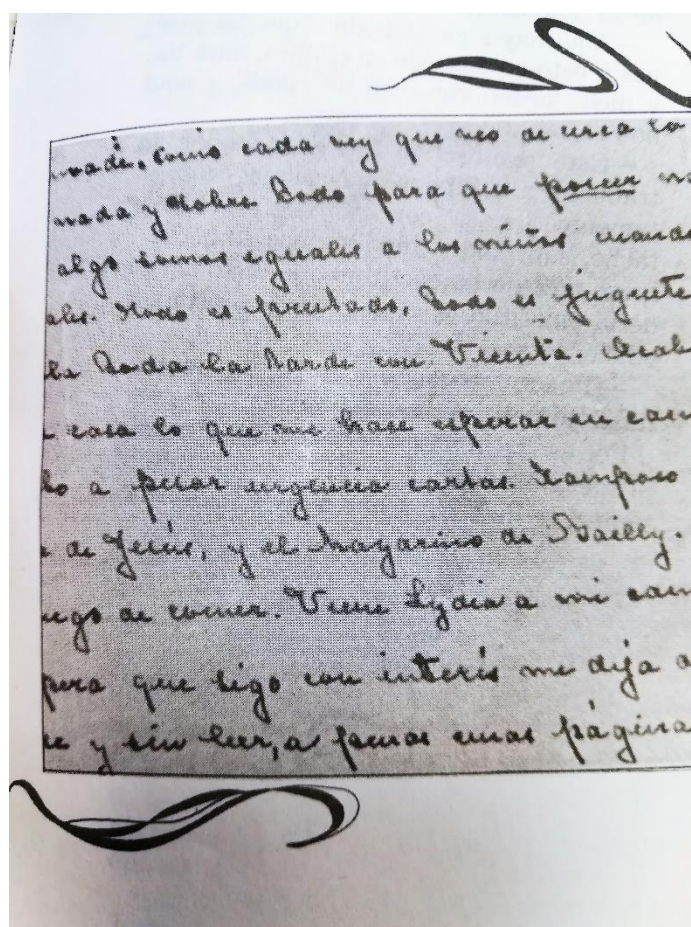 como cada vez que veo de cerca lo
nada y sobre todo para que poseer
algo somos eguales a los niños cuando
ales. Todo es prestado, todo es juguete
toda la tarde con Vicenta.
casa lo que me hace esperar en cam
a pesar urgencia cartas. Tampoco
de Jesús, y el Mazarino de Bailly.
uego de comer. Viene Lydia a mi cam
pera que sigo con interés me deja
y sin leer, a penas unas página